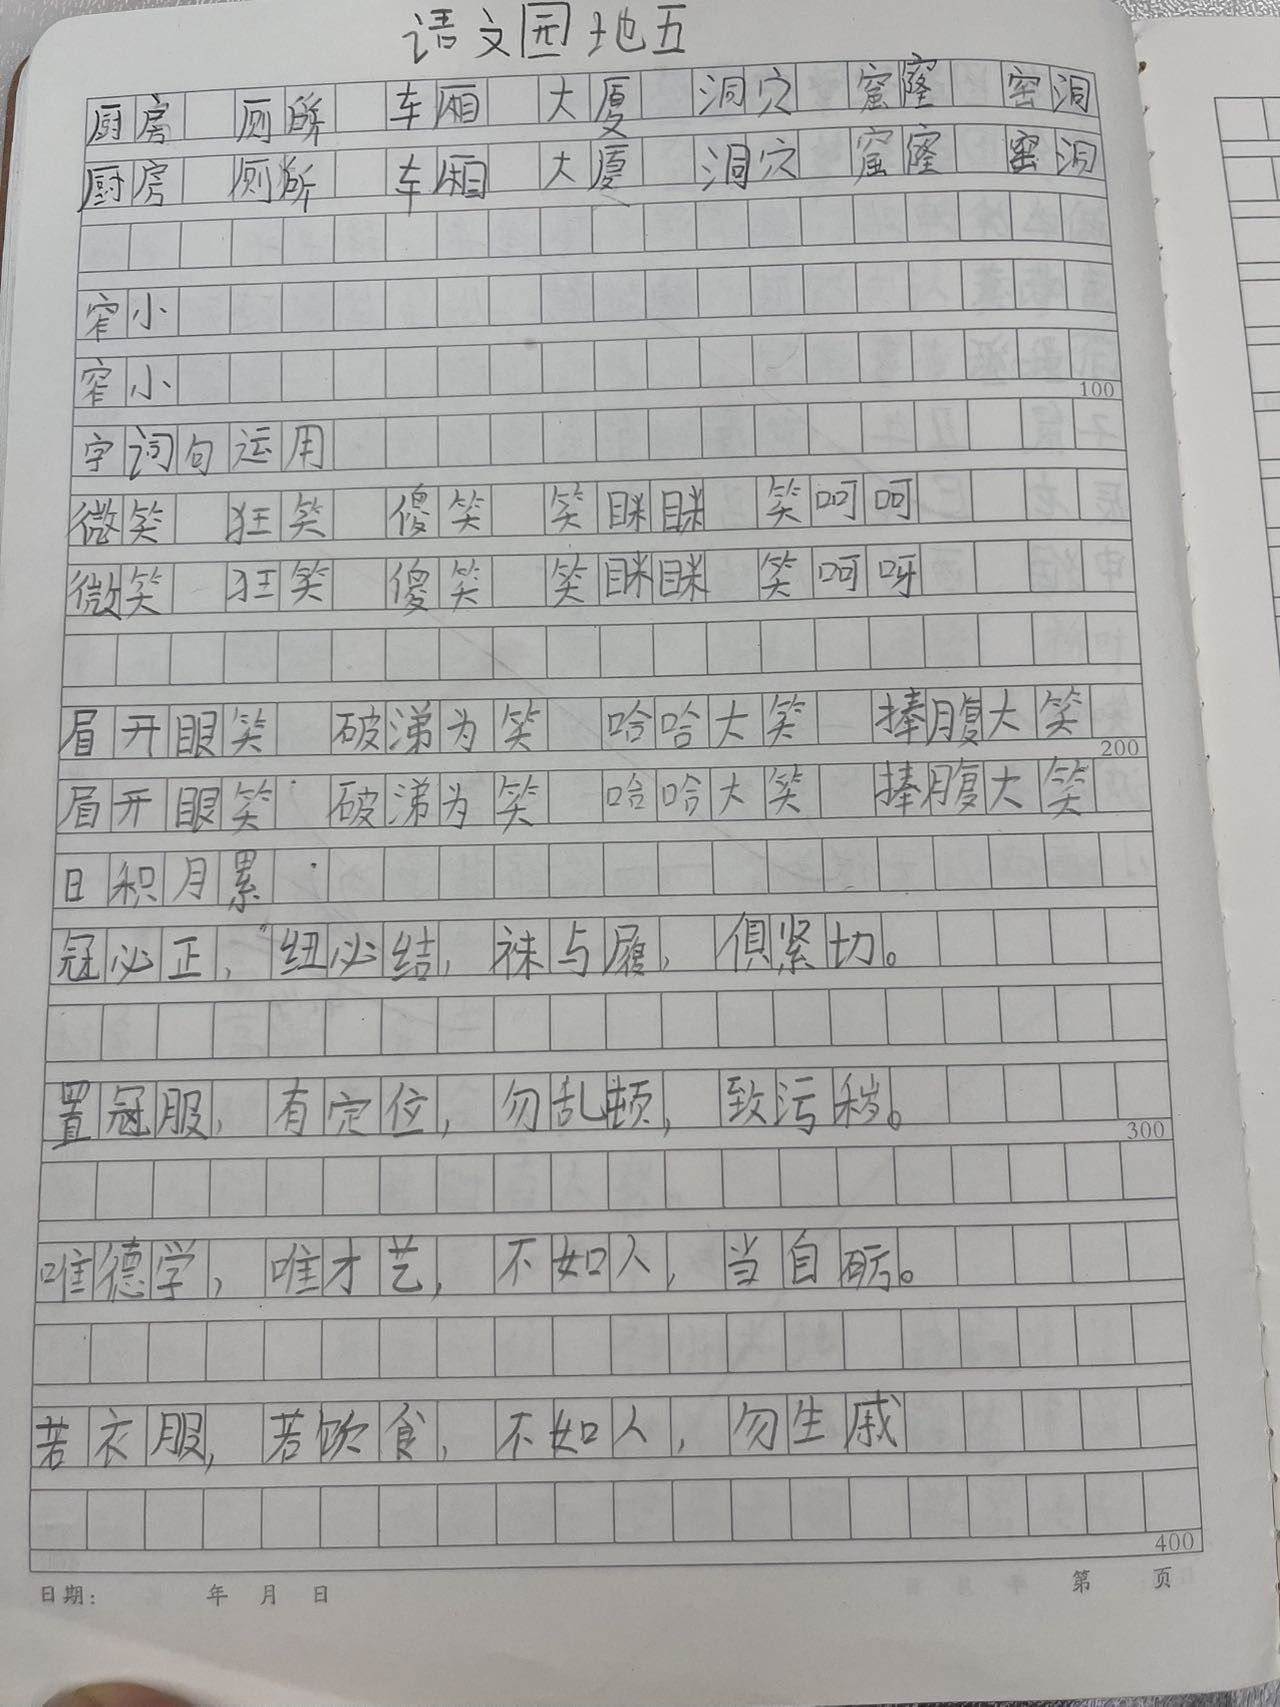 语文园地五
厨房 厕所 车厢 大厦 洞穴 窟窿 窑洞
厨房 厕所 车厢 大厦 洞穴 窟窿 窑洞
窄小
窄小
100
字词句运用
微笑 狂笑 傻笑 笑眯眯 笑呵呵
微笑 狂笑 傻笑 笑眯眯 笑呵呀
眉开眼笑 破涕为笑 哈哈大笑 捧腹大笑
200
眉开眼笑 破涕为笑 哈哈大笑 捧腹大笑
日积月累
冠必正，纽必结，袜与履，俱紧切。
置冠服，有定位，勿乱顿，致污秽。
300
唯德学，唯才艺，不如人，当自砺。
若衣服，若饮食，不如人，勿生戚
400
日期： 年 月 日 第 页